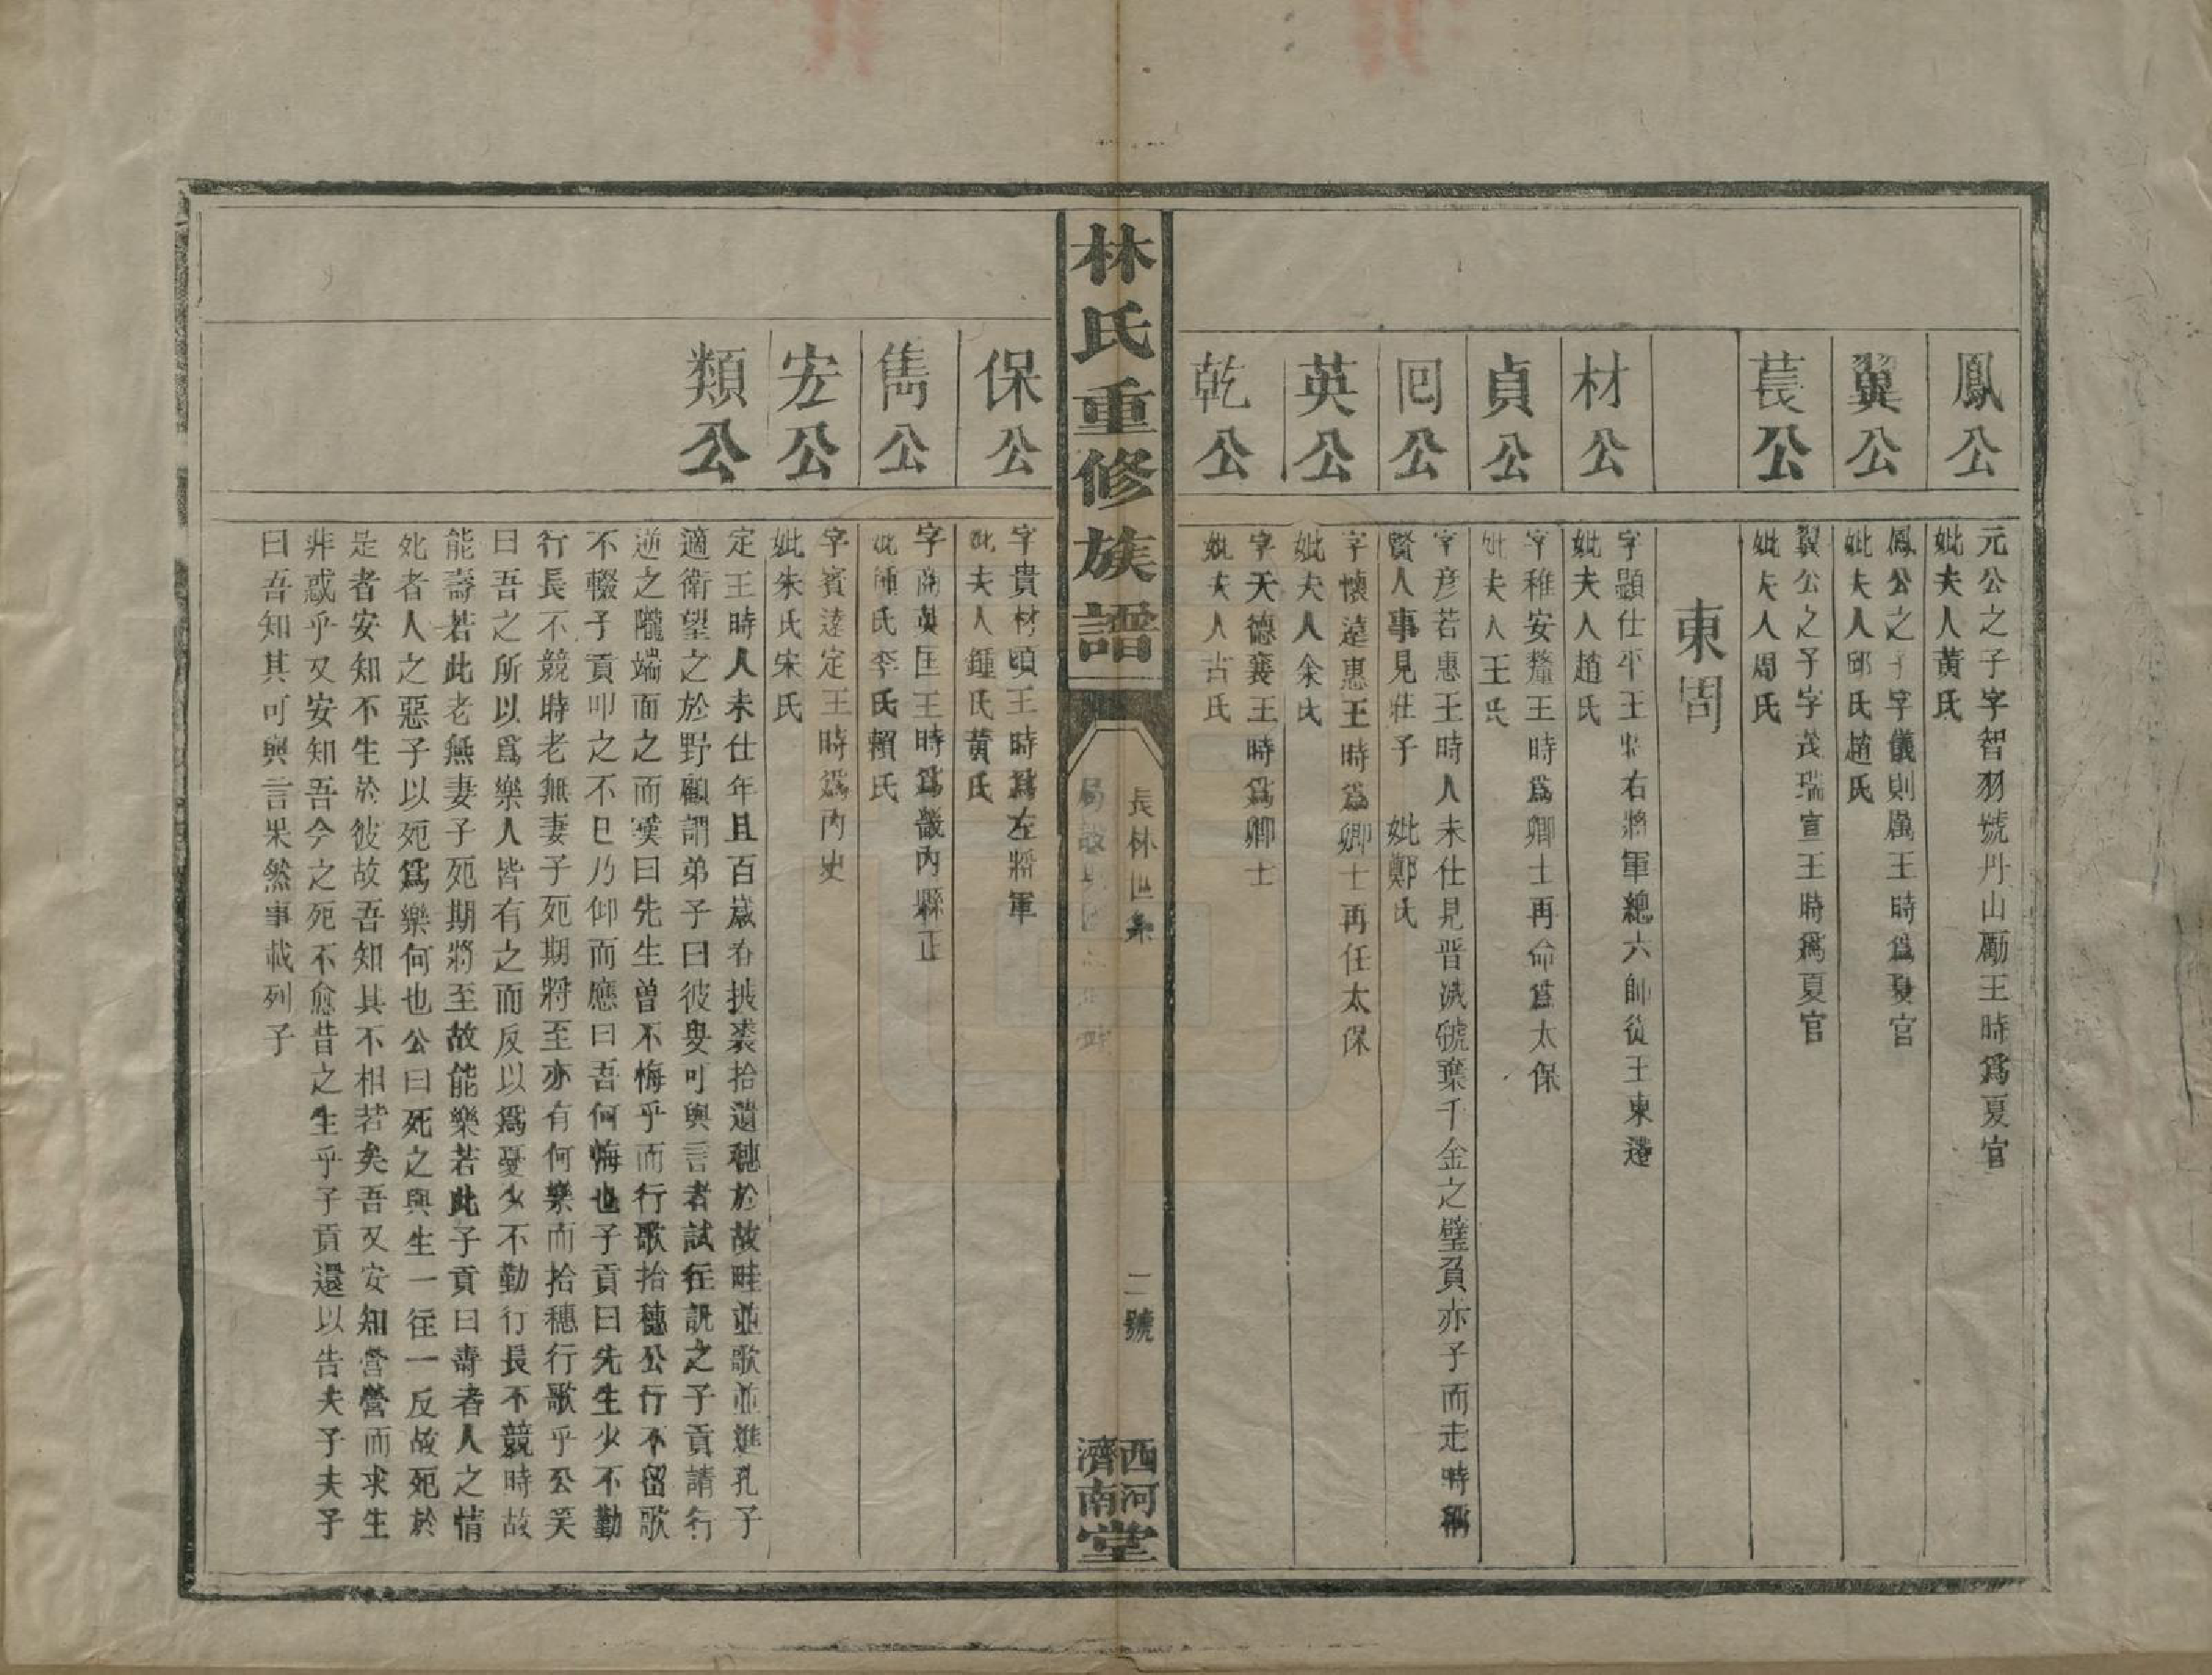 鳳公
元公之子字智羽號丹山勵王時爲夏官
妣夫人黃氏
翼公
鳳公之子字儀則厲王時爲夏官
妣夫人邱氏趙氏
萇公
翼公之子字茂瑞宣王時爲夏官
妣夫人周氏
東周
材公
字顯仕平王將右將軍總六師從王東遷
妣夫人趙氏
貞公
字稚安釐王時爲卿士再命爲太保
妣夫人王氏
囘公
字彥若惠王時人未仕見晋滅虢棄千金之璧負赤子而走時稱
賢人事見莊子 妣鄭氏
英公
字懷遠惠王時爲卿士再任太保
妣夫人余氏
乾公
字天德襄王時爲卿士
妣夫人古氏
林氏重修族譜
長林世系
二號
西河
濟南
堂
保公
字貴材頃王時爲左將軍
妣夫人鍾氏黃氏
雋公
字商英匡王時爲畿內縣正
妣鍾氏李氏賴氏
宏公
字賓達定王時爲內史
妣朱氏宋氏
類公
定王時人未仕年且百歲春披裘拾遺穗於故畦並歌並進孔子
適衛望之於野顧謂弟子曰彼叟可與言者試往訊之子貢請行
逆之隴端面之而嘆曰先生曾不悔乎而行歌拾穗公行不留歌
不輟子貢叩之不已乃仰而應曰吾何悔也子貢曰先生少不勤
行長不競時老無妻子死期將至亦有何樂而拾穗行歌乎公笑
曰吾之所以爲樂人皆有之而反以爲憂少不勤行長不競時故
能壽若此老無妻子死期將至故能樂若此子貢曰壽者人之情
死者人之惡子以死爲樂何也公曰死之與生一往一反故死於
是者安知不生於彼故吾知其不相若矣吾又安知營營而求生
非惑乎又安知吾今之死不愈昔之生乎子貢還以告夫子夫子
曰吾知其可與言果然事載列子